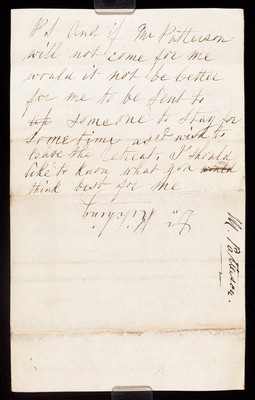 P.S And if Mr Patterson
will not come for me
would it not be better
for me to be sent to
up some one to stay for
some time as I wish to
leave the retreat. I should
like to know what you would
think best for me
M. Patterson.